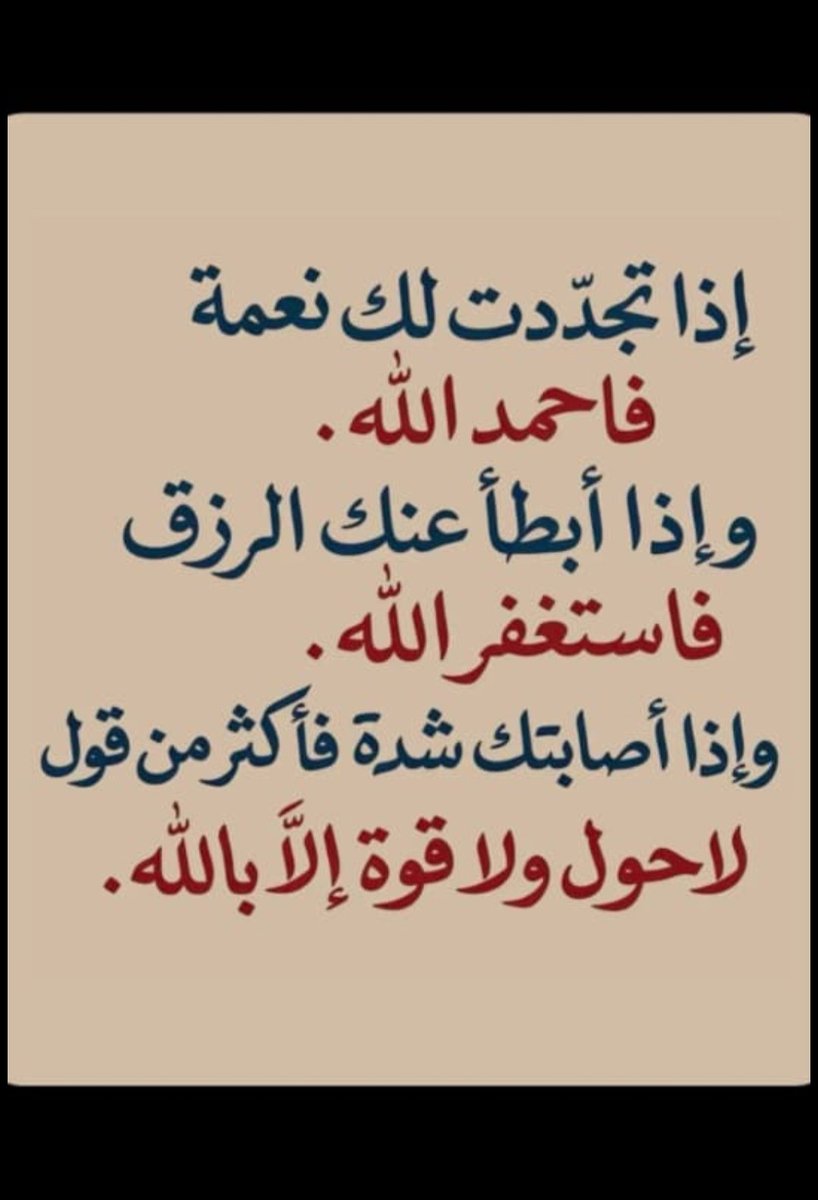 إذا تجدّدت لك نعمة
فاحمد الله .
وإذا أبطأ عنك الرزق
فاستغفر الله .
وإذا أصابتك شدة فأكثر من قول
لا حول ولا قوة إلاَّ بالله .